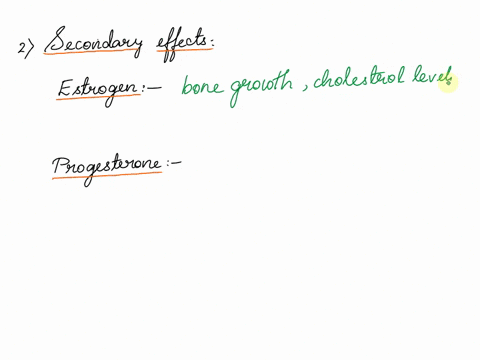 2) Secondary effects:
Estrogen:- bone growth, cholestrol levels
Progesterone:-